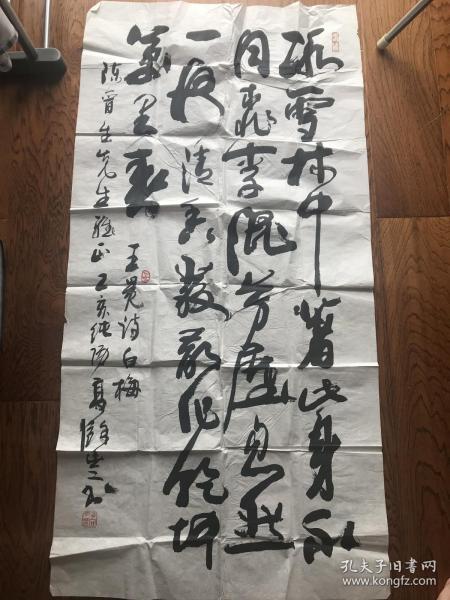 冰雪林中著此身不
同桃李混芳尘忽然
一夜清香发散作乾坤
万里春
王冕诗白梅
陈晋生先生雅正乙亥纯阳夏
孔夫子旧书网
www.kongfz.com